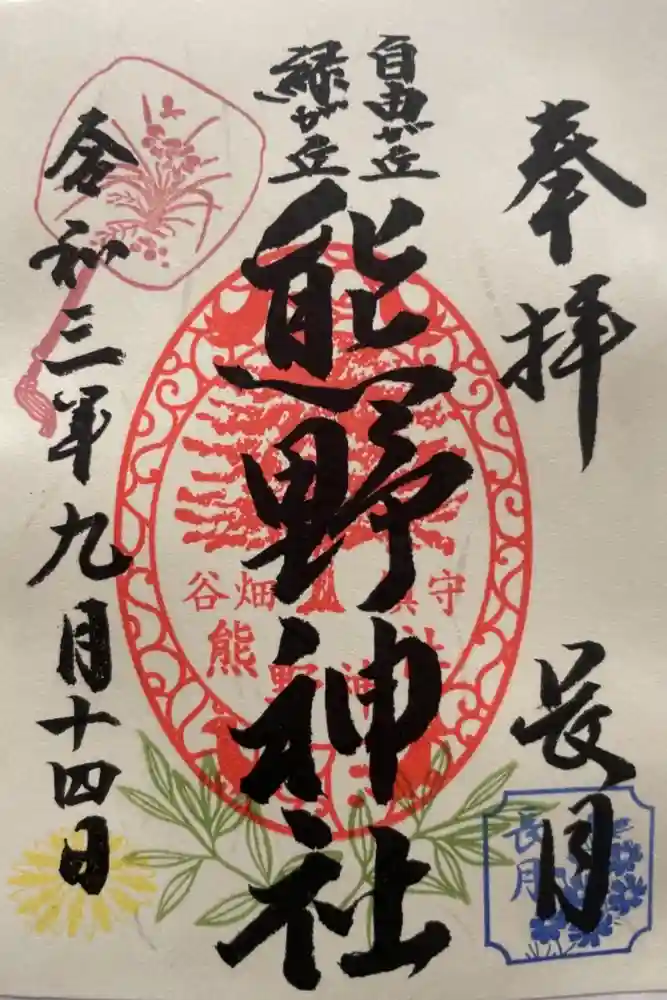 奉拝
長月
長月
自由が丘
緑が丘
熊野神社
谷畑 鎮守
熊野神社
令和三年九月十四日